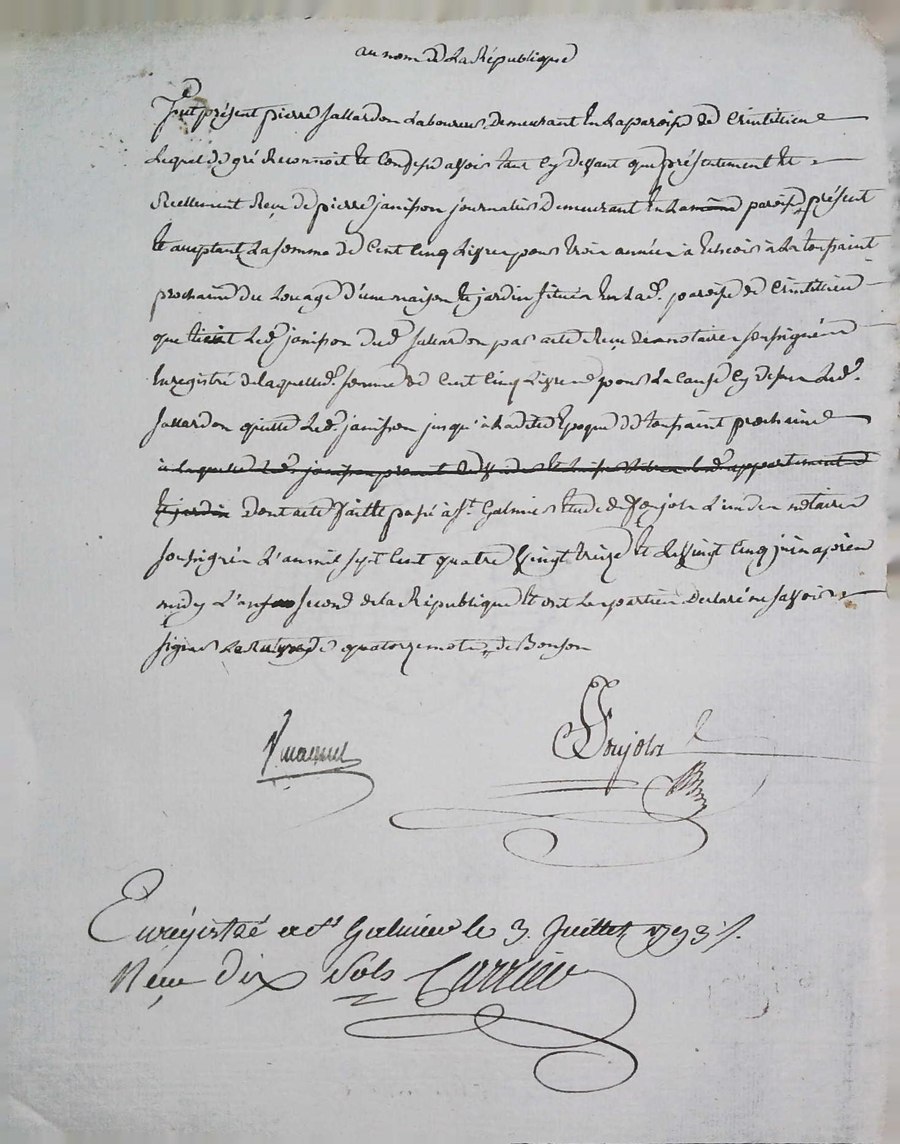 au nom de La République
Fut présent pierre Jallardon Laboureur demeurant En La paroisse de
Lequel de gré Reconnoit Et Confesse avoir tant Cy devant que présentement Et
Reellement Reçu de pierre janisson journalier demeurant En La même paroisse présent
Et acceptant La somme de Cent Cinq Livres pour trois années à Echeoir à La toussaint
prochaine du Louage d'une maison Et jardin situés En Lad. paroisse de
que tient Led. janisson dud. Jallardon par acte Reçu des notaires soussignés
Enregistré de laquelle d. somme de Cent Cinq Livres pour La Cause Cy dessus Led.
Jallardon quitte Led. janisson jusqu'à Ladite Epoque de toussaint prochaine
à Laquelle Led. janisson promet appartement
Et jardin Dont acte fait Et passé à St. Galmier Etude de Poujola L'un des notaires
soussignés L'an mil sept Cent quatre Vingt treize Et Le Vingt Cinq juin après
midy L'an second de La République Et ont Les parties Déclaré ne savoir
signer quatorze mots de Bonson
Poujola
Enrégistré a St Galmier le 3. Juillet 1793
Reçu dix sols Carrier